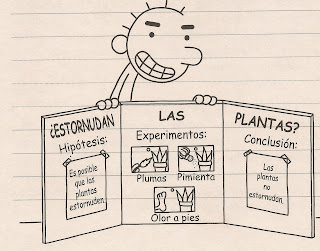 ¿ESTORNUDAN LAS PLANTAS?
Hipótesis:
Es posible
que las
plantas
estornuden.
Experimentos:
Plumas Pimienta
Olor a pies
Conclusión:
Las
plantas
no
estornudan.